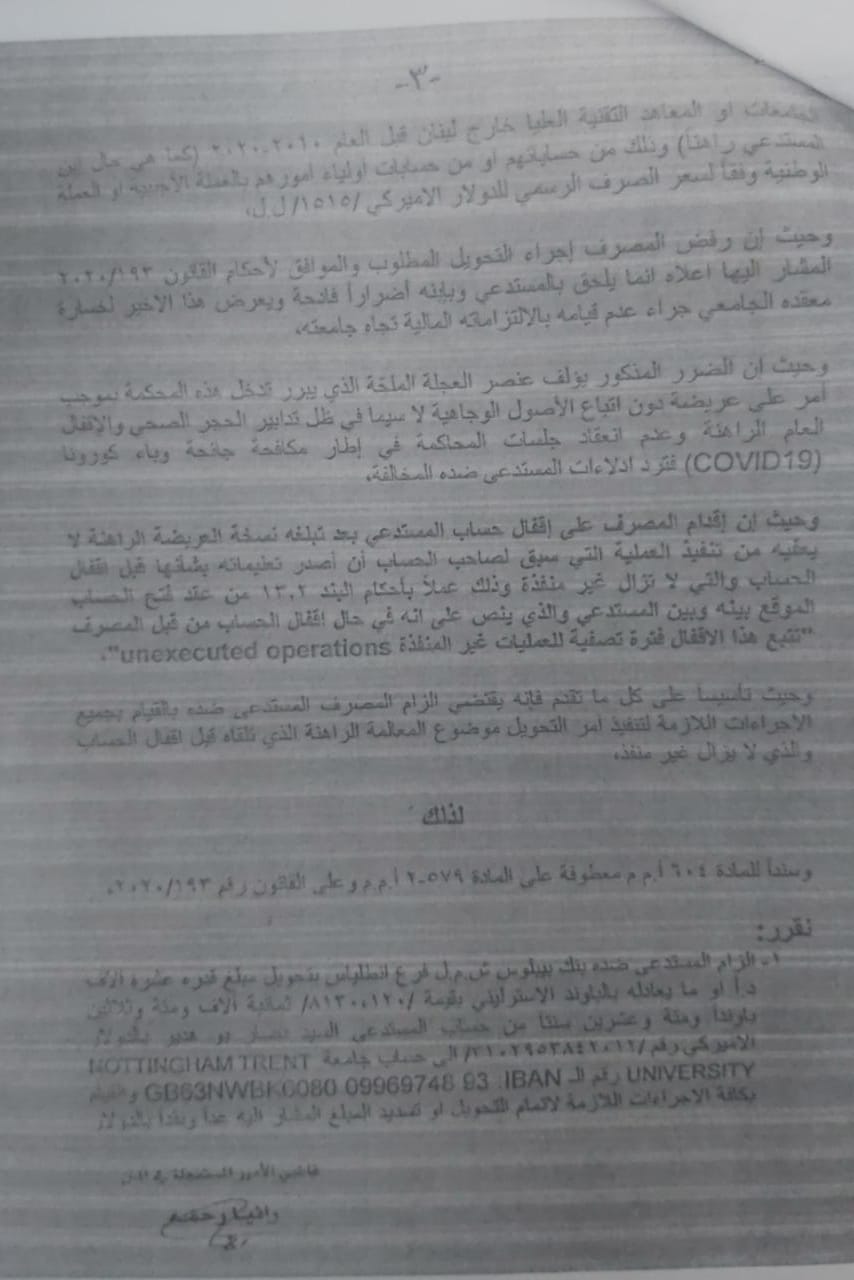 -٣-
الجامعات او المعاهد التقنية العليا خارج لبنان قبل العام ٢٠١٠-٢٠٢٠ (كما هي حال ابن
المستدعي راهناً) وذلك من حساباتهم او من حسابات اولياء امورهم بالعملة الأجنبية او العملة
الوطنية وفقاً لسعر الصرف الرسمي للدولار الاميركي /١٥١٥/ ل.ل.
وحيث إن رفض المصرف إجراء التحويل المطلوب والموافق لأحكام القانون ٢٠٢٠/١٩٣
المشار اليها اعلاه انما يلحق بالمستدعي وبابنه أضراراً فادحة ويعرض هذا الأخير لخسارة
مقعده الجامعي جراء عدم قيامه بالالتزاماته المالية تجاه جامعته.
وحيث ان الضرر المذكور يؤلف عنصر العجلة الملحة الذي يبرر تدخل هذه المحكمة بموجب
أمر على عريضة دون اتباع الأصول الوجاهية لا سيما في ظل تدابير الحجر الصحي والإقفال
العام الراهنة وعدم انعقاد جلسات المحاكمة في إطار مكافحة جائحة وباء كورونا
(COVID19) فترد ادلاءات المستدعى ضده المخالفة.
وحيث إن إقدام المصرف على إقفال حساب المستدعي بعد تبلغه نسخة العريضة الراهنة لا
يعفيه من تنفيذ العملية التي سبق لصاحب الحساب أن أصدر تعليماته بشأنها قبل اقفال
الحساب والتي لا تزال غير منفذة وذلك عملاً بأحكام البند ١٣.٢ من عقد فتح الحساب
الموقع بينه وبين المستدعي والذي ينص على انه في حال إقفال الحساب من قبل المصرف
"تتبع هذا الاقفال فترة تصفية للعمليات غير المنفذة unexecuted operations".
وحيث تأسيساً على كل ما تقدم فانه يقتضي الزام المصرف المستدعى ضده بالقيام بجميع
الاجراءات اللازمة لتنفيذ امر التحويل موضوع المعاملة الراهنة الذي تلقاه قبل اقفال الحساب
والذي لا يزال غير منفذ.
لذلك
وسنداً للمادة ٦٠٤ أ.م.م معطوفة على المادة ٥٧٩-٢ أ.م.م وعلى القانون رقم ٢٠٢٠/١٩٣.
نقرر:
١- الزام المستدعى ضده بنك بيبلوس ش.م.ل فرع انطلياس بتحويل مبلغ قدره عشرة الاف
د.أ او ما يعادله بالباوند الاسترليني بقيمة /٨١٣٠،١٢٠/ ثمانية آلاف ومئة وثلاثين
باونداً ومئة وعشرين سنتاً من حساب المستدعي السيد بو هدير بالدولار
الاميركي رقم الى حساب جامعة NOTTINGHAM TRENT
UNIVERSITY رقم الـ IBAN: GB63NWBK6080 09969748 93 والقيام
بكافة الاجراءات اللازمة لاتمام التحويل او تسديد المبلغ المشار اليه عداً ونقداً بالدولار
قاضي الأمور المستعجلة في المتن